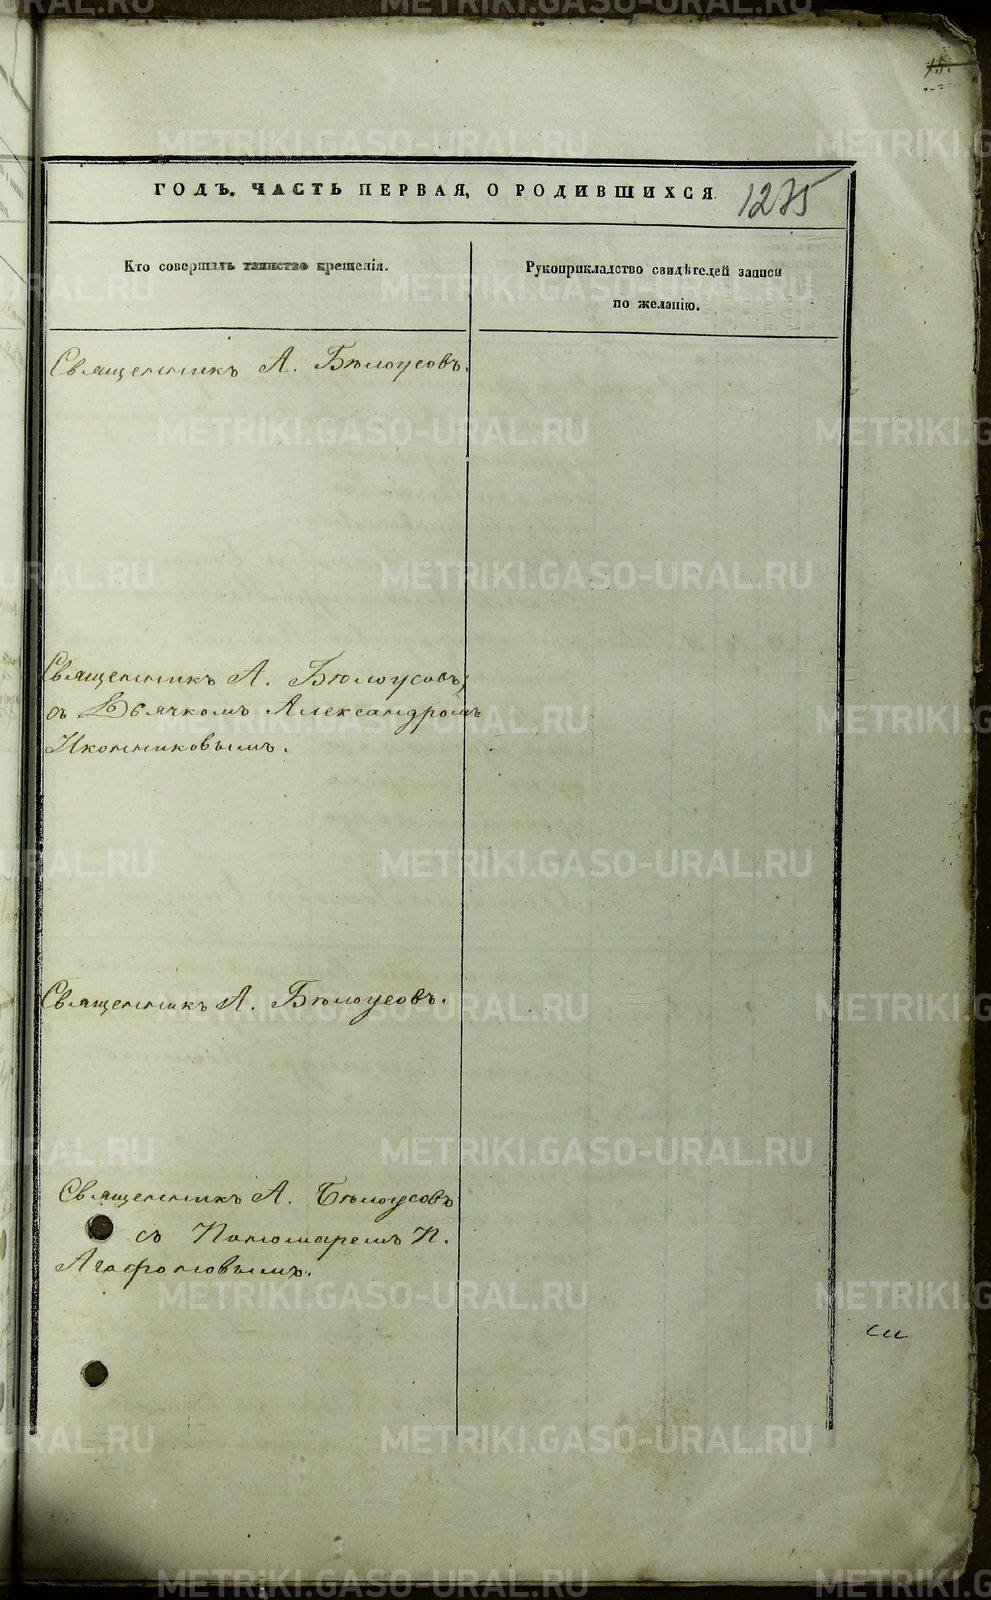 15.
ГОДЪ. ЧАСТЬ ПЕРВАЯ, О РОДИВШИХСЯ.
1275
Кто совершалъ таинство крещенія.
Рукоприкладство свидѣтелей записи
по желанію.
Священникъ А. Бѣлоусовъ.
Священникъ А. Бѣлоусовъ,
съ Дьячкомъ Александромъ
Иконниковымъ.
Священникъ А. Бѣлоусовъ.
Священникъ А. Бѣлоусовъ
съ Пономаремъ П.
Агафоновымъ.
METRIKI.GASO-URAL.RU